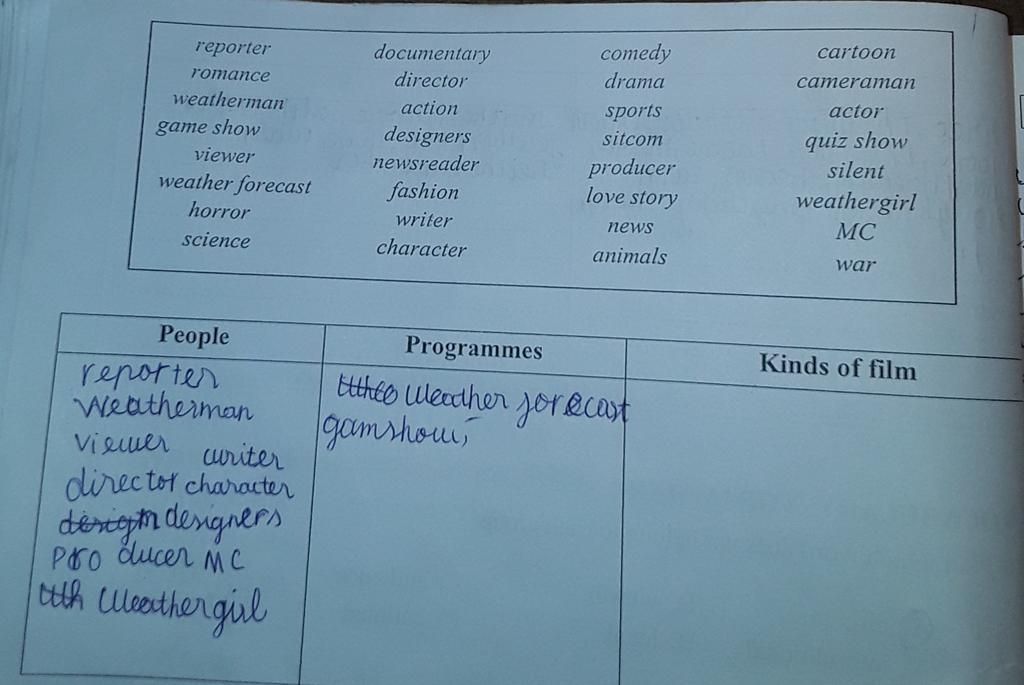 reporter documentary comedy cartoon
romance director drama cameraman
weatherman action sports actor
game show designers sitcom quiz show
viewer newsreader producer silent
weather forecast fashion love story weathergirl
horror writer news MC
science character animals war
People Programmes Kinds of film
reporter
weatherman
viewer writer
director character
designers
producer MC
weathergirl
weather forecast
gamshow,